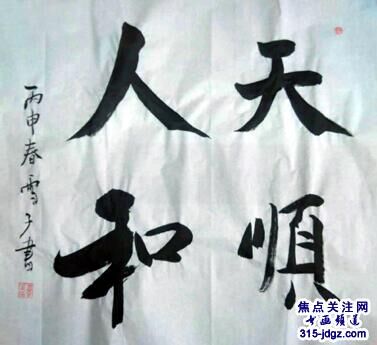 天順
人和
丙申春雪子書
焦点关注网
书画频道
315-jdgz.com